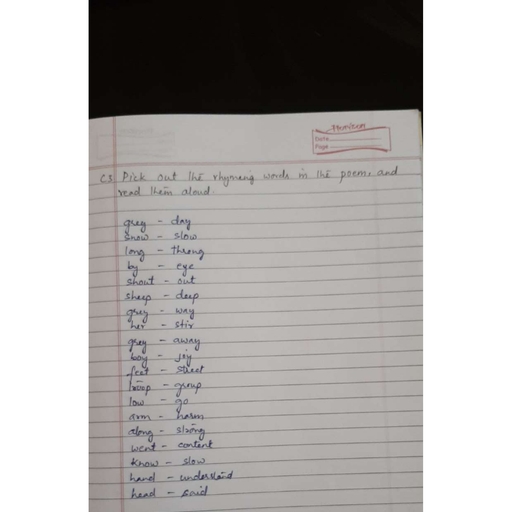 PREMIUM
Date
Page
C3 Pick out the rhyming words in the poem, and
read them aloud.
grey - day
snow - slow
long - throng
by - eye
shout - out
sheep - deep
grey - way
her - stir
grey - away
boy - joy
feet - street
troop - group
low - go
arm - harm
along - strong
went - content
know - slow
hand - understand
head - said